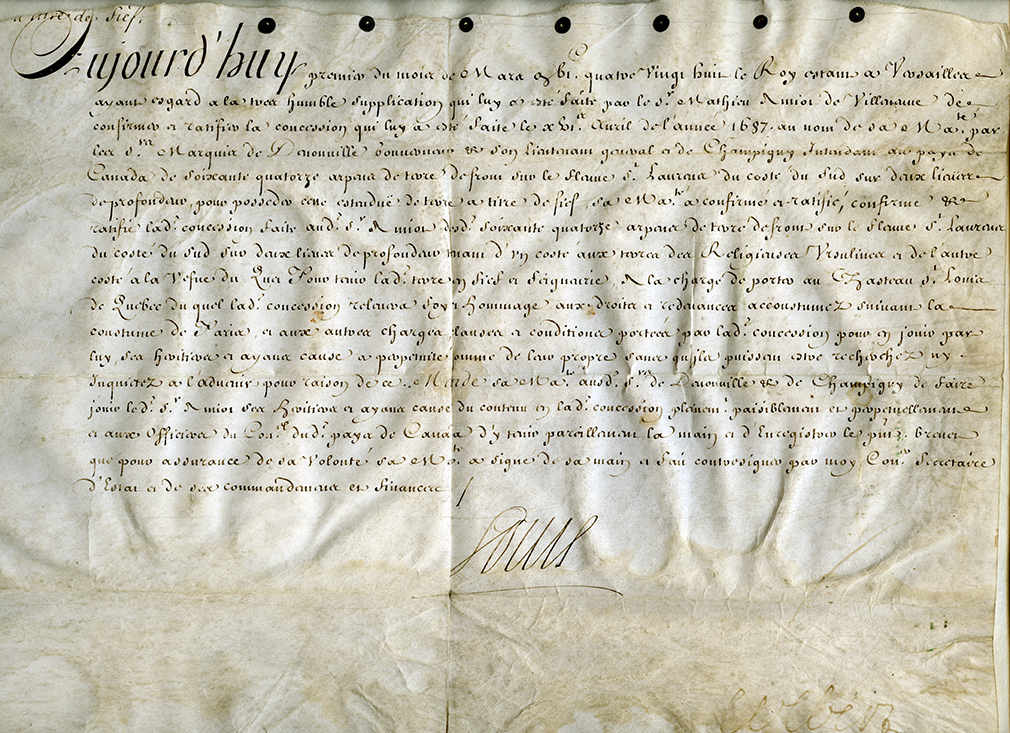 a titre de fief.
Aujourd'huy premier du mois de Mars gbic quatre Vingt huit le Roy estant a Versailles
ayant esgard a la tres humble supplication qui luy a esté faite par le Sr. Mathieu Amiot de Villeneuve de
confirmer et ratifier la concession qui luy a esté faite le Avril de l'année 1687. au nom de sa Mate. par
les Srs. Marquis de Denonville Gouverneur & son lieutenant general et de Champigny Intendant au pays de
Canada de soixante quatorze arpens de terre de front sur le fleuve St. Laurens du costé du Sud sur deux lieües
de profondeur, pour posseder cette estenduë de terre a titre de fief, sa Mate. a confirmé et ratifié, confirme &
ratifie lad. concession faite aud. Sr. Amiot desd. soixante quatorze arpens de terre de front sur le fleuve St. Laurens
du costé du Sud sur deux lieües de profondeur tenant d'un costé aux terres des Religieuses Ursulines et de l'autre
costé a la Vefve du Quet Pour tenir lad. terre en fief et Seigneurie, A la charge de porter au Chasteau St. Louis
de Quebec duquel lad. concession relevera foy et hommage aux droits et redevances accoustumez suivant la
coustume de Paris, et aux autres charges clauses et conditions portées par lad. concession pour en jouir par
luy, ses heritiers et ayans cause a perpetuité comme de leur propre sans qu'ils puissent estre recherchez ny
Inquietez a l'advenir pour raison de ce. Mande sa Mate. ausd. Srs. de Denonville & de Champigny de faire
jouir led. Sr. Amiot ses heritiers et ayans cause du contenu en lad. concession plenemt. paisiblement et perpetuellement
et aux Officiers du Conel. dud. pays de Canada d'y tenir pareillement la main et d'Enregistrer le pnt. brevet
que pour assurance de sa Volonté sa Mate. a signé de sa main et fait contresigner par moy Coner. Secretaire
d'Estat et de ses commandemens et finances
Louis